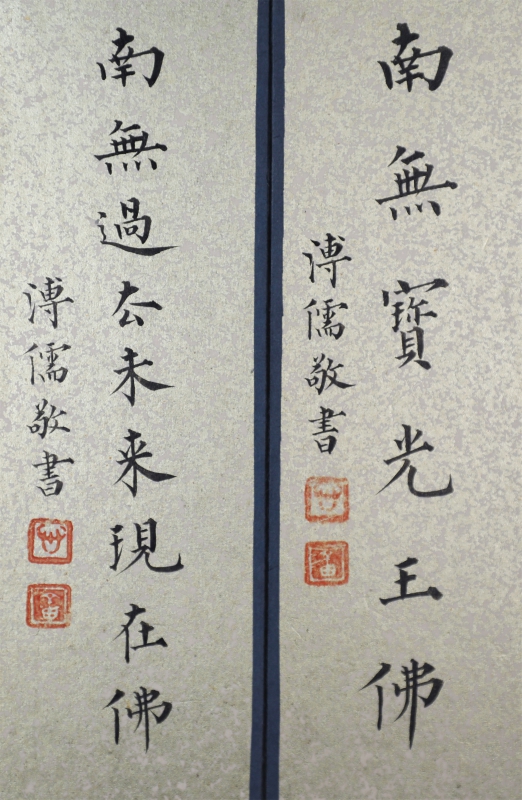 南無寶光王佛
溥儒敬書
南無過去未来現在佛
溥儒敬書